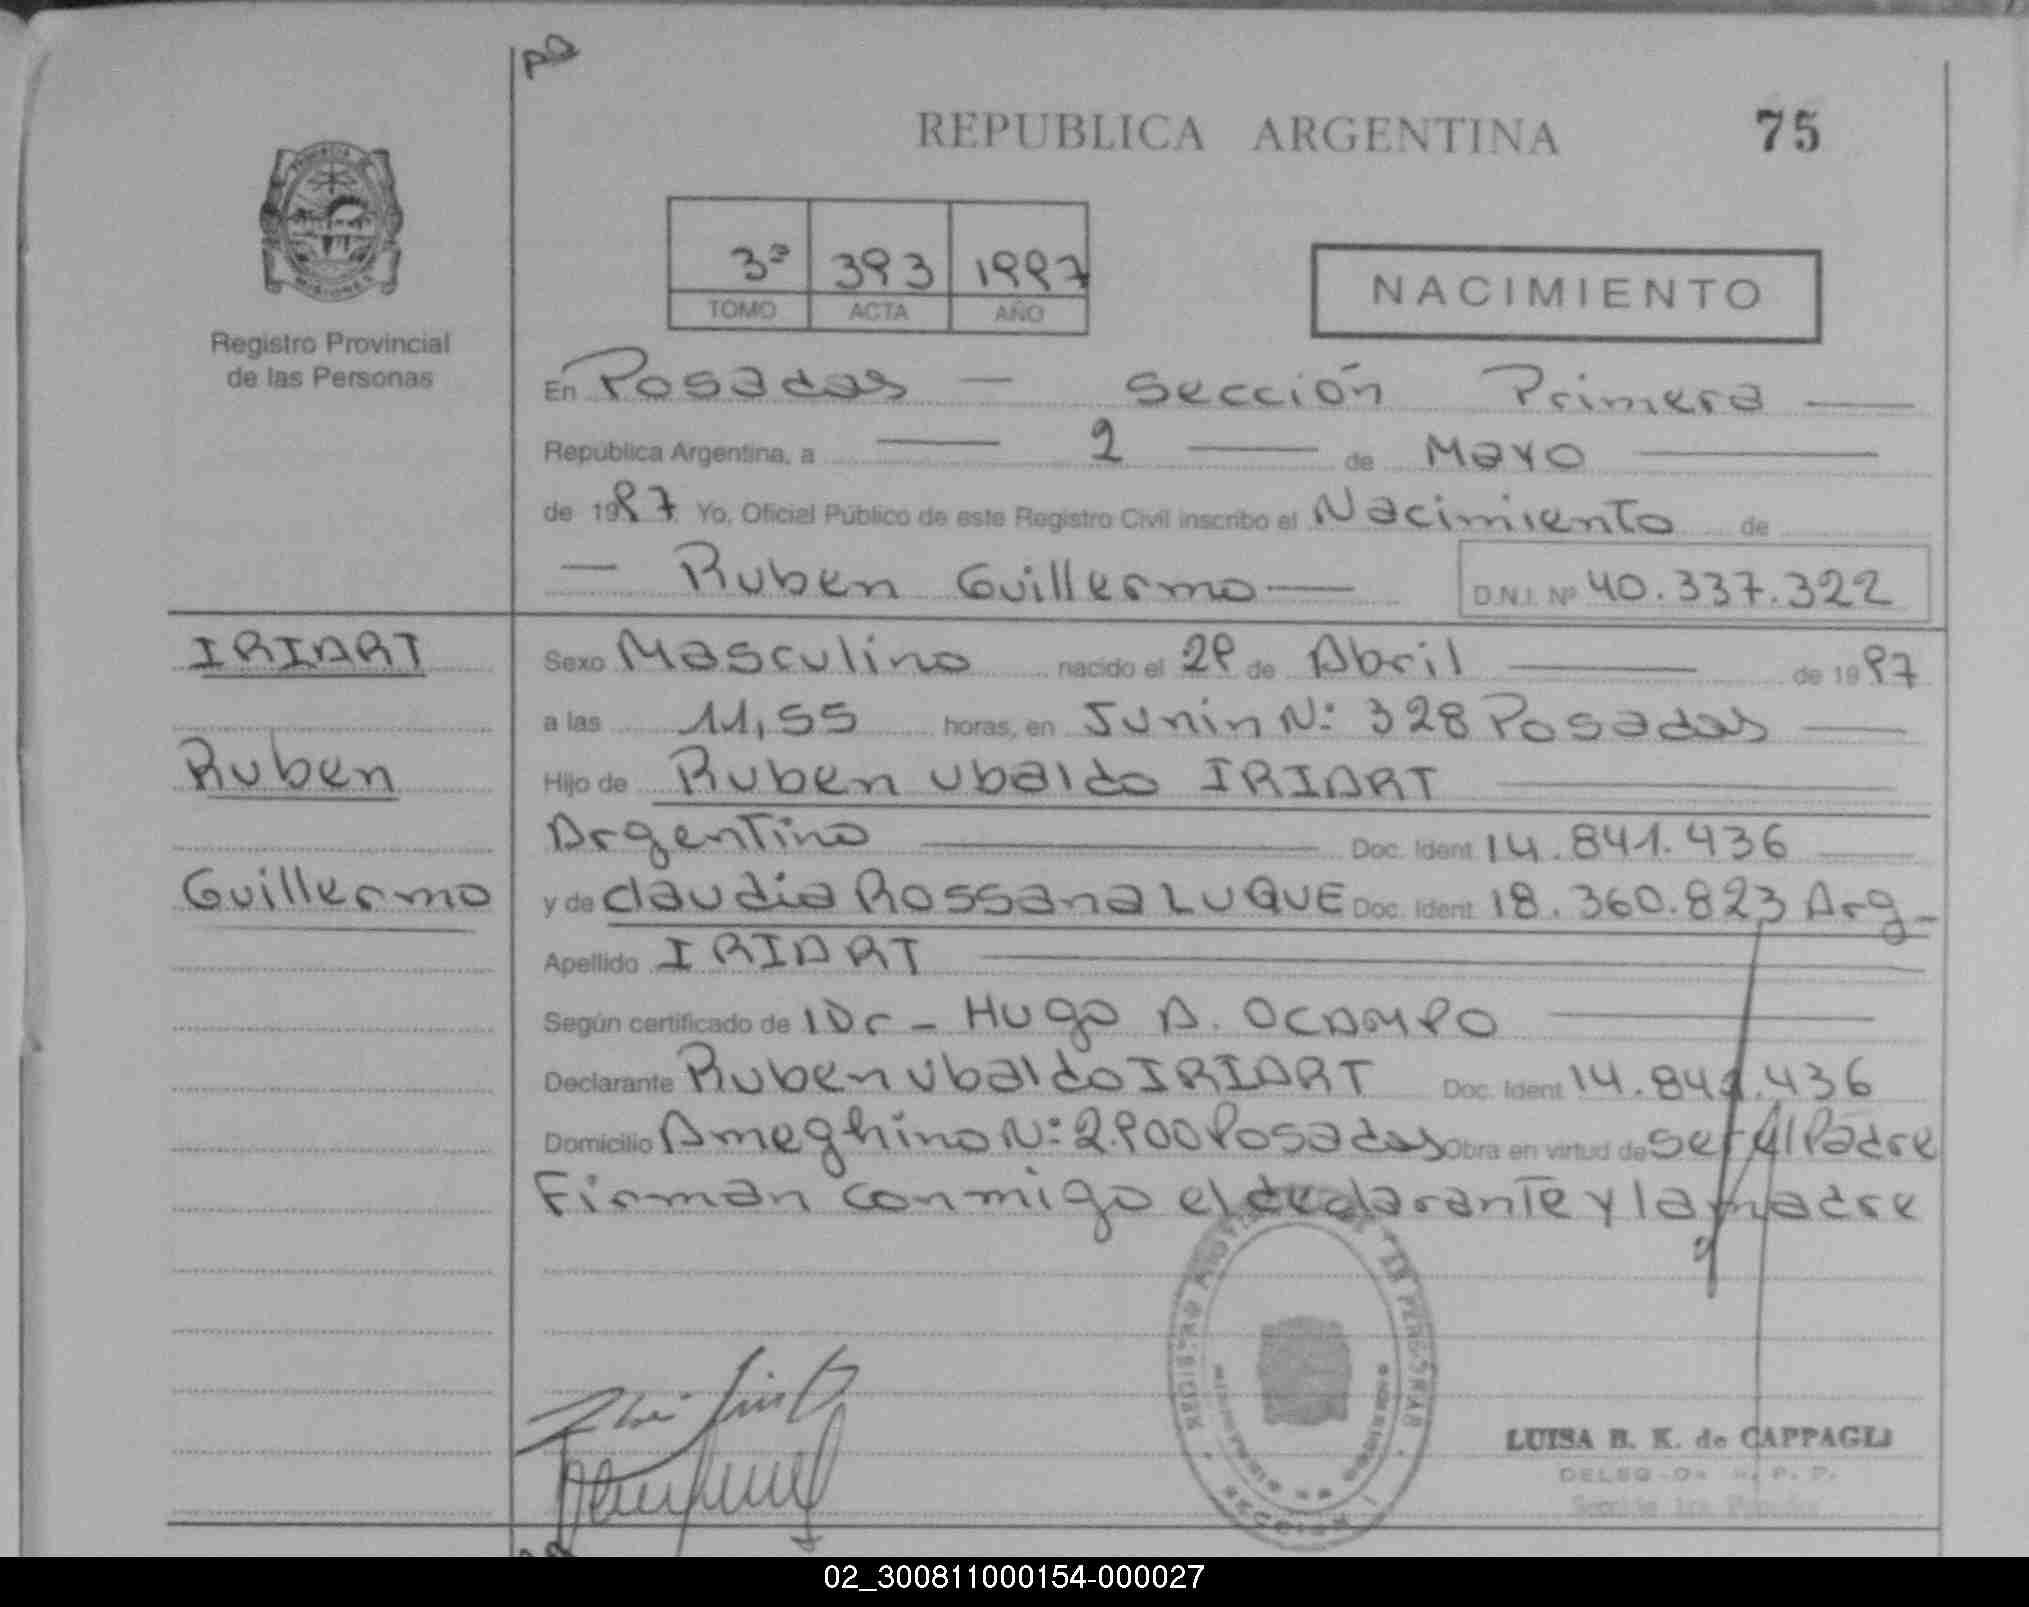 REPUBLICA ARGENTINA
75
PROVINCIA DE MISIONES
Registro Provincial
de las Personas
3ª 393 1997
TOMO ACTA AÑO
NACIMIENTO
En Posadas — Sección Primera —
Republica Argentina, a — 2 — de Mayo —
de 1997 Yo, Oficial Público de este Registro Civil inscribo el Nacimiento de
— Ruben Guillermo — D.N.I. Nº 40.337.322
IRIART
Ruben
Guillermo
Sexo Masculino nacido el 29 de Abril — de 1997
a las 11,55 horas, en Junin N: 328 Posadas —
Hijo de Ruben Ubaldo IRIART —
Argentino — Doc. Ident 14.841.436
y de Claudia Rossana LUQUE Doc. Ident 18.360.823 Arg-
Apellido IRIART —
Según certificado de Dr- Hugo A. OCAMPO —
Declarante Ruben Ubaldo IRIART Doc. Ident 14.841.436
Domicilio Ameghino N: 2.900 Posadas Obra en virtud de ser el Padre
Firman conmigo el declarante y la madre
LUISA B. K. de CAPPAGLI
02_300811000154-000027